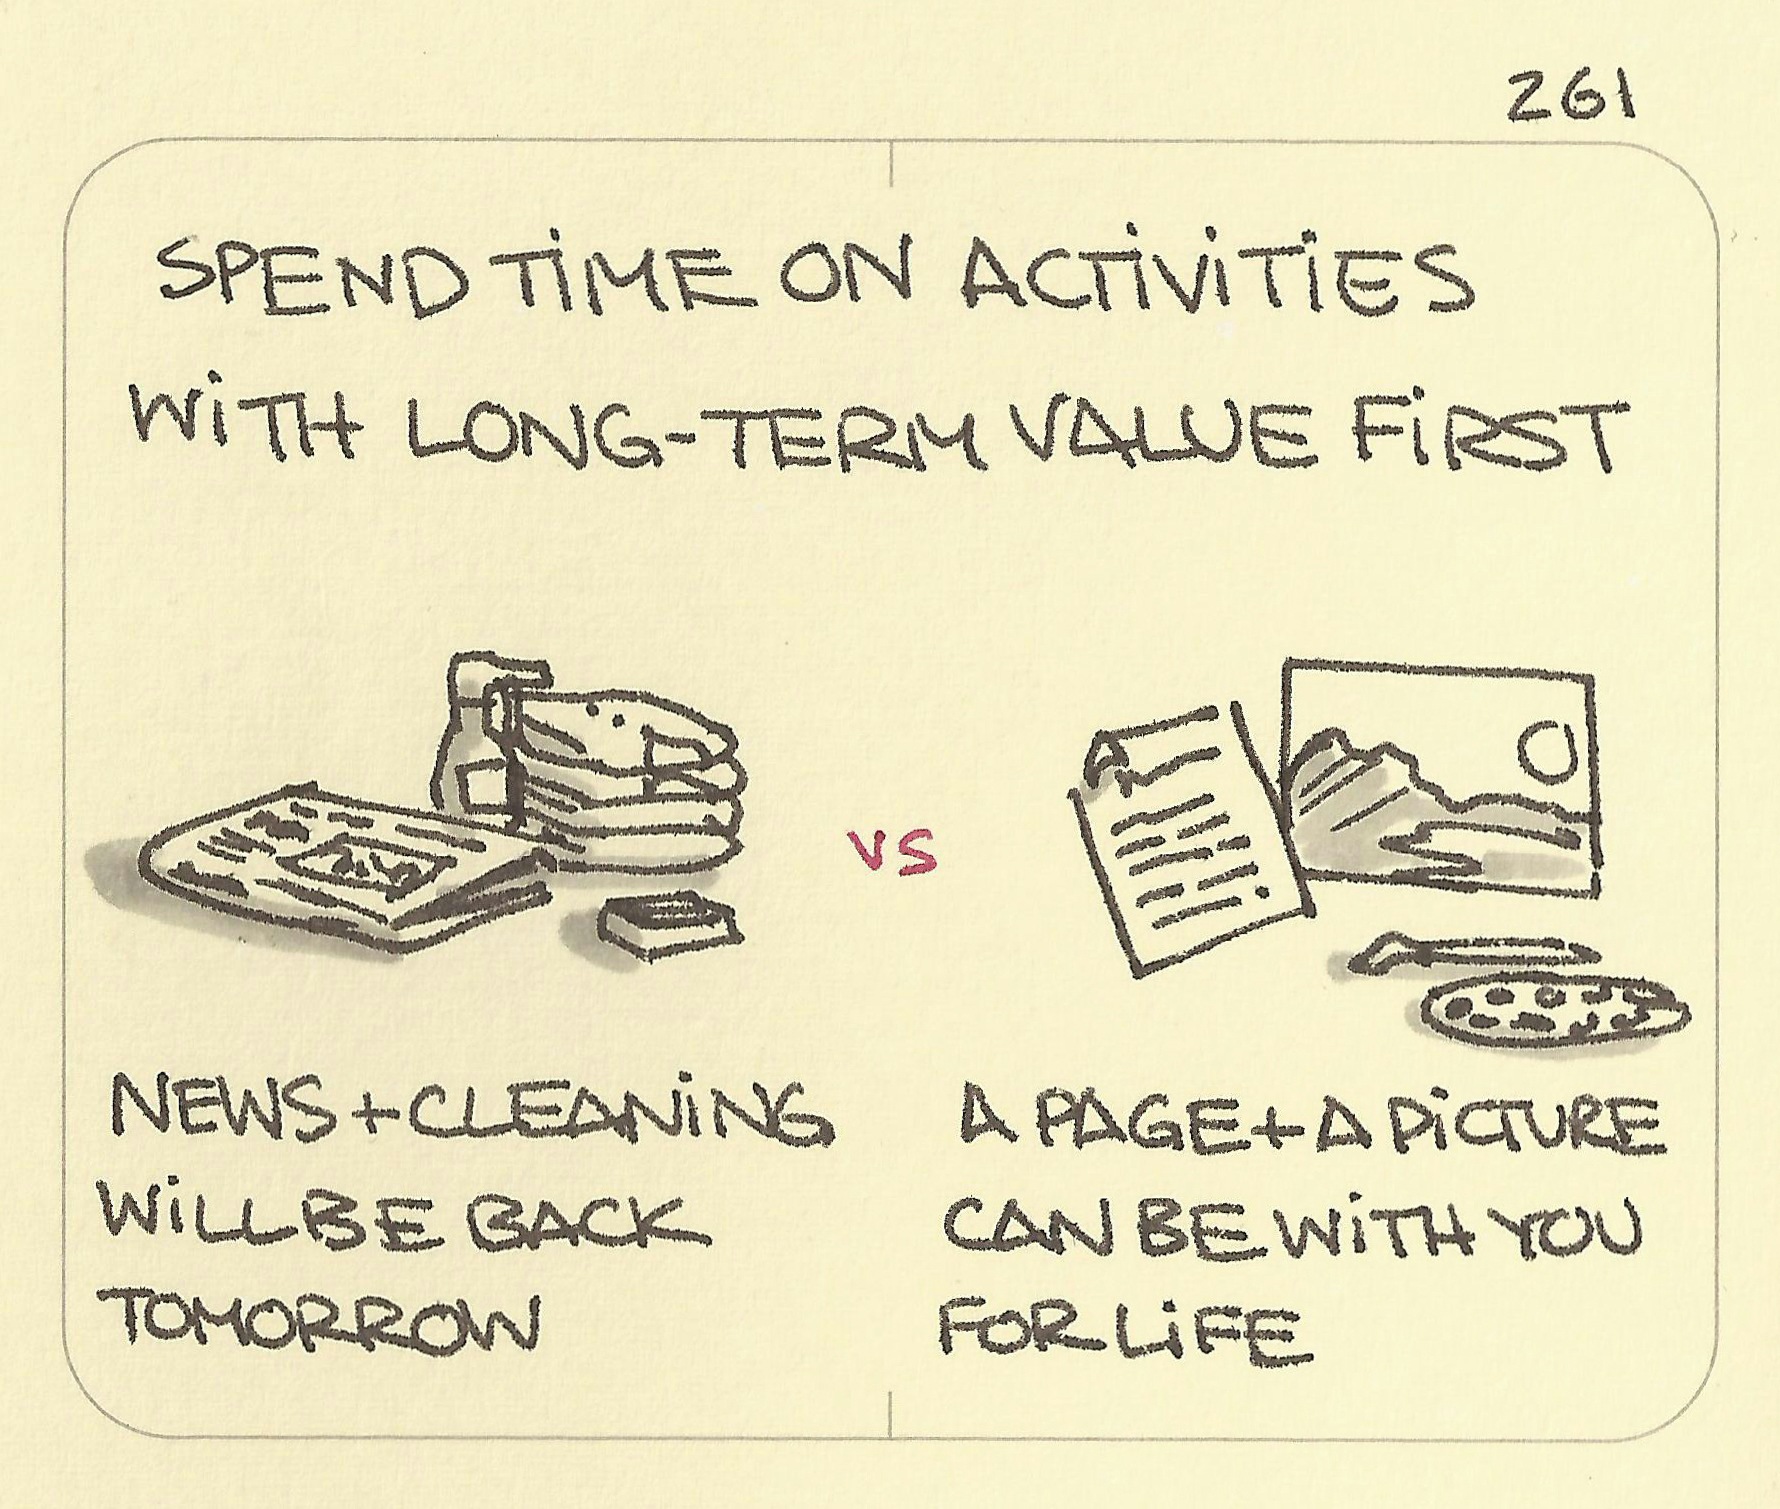 261
SPEND TIME ON ACTIVITIES
WITH LONG-TERM VALUE FIRST
VS
NEWS + CLEANING
WILL BE BACK
TOMORROW
A PAGE + A PICTURE
CAN BE WITH YOU
FOR LIFE